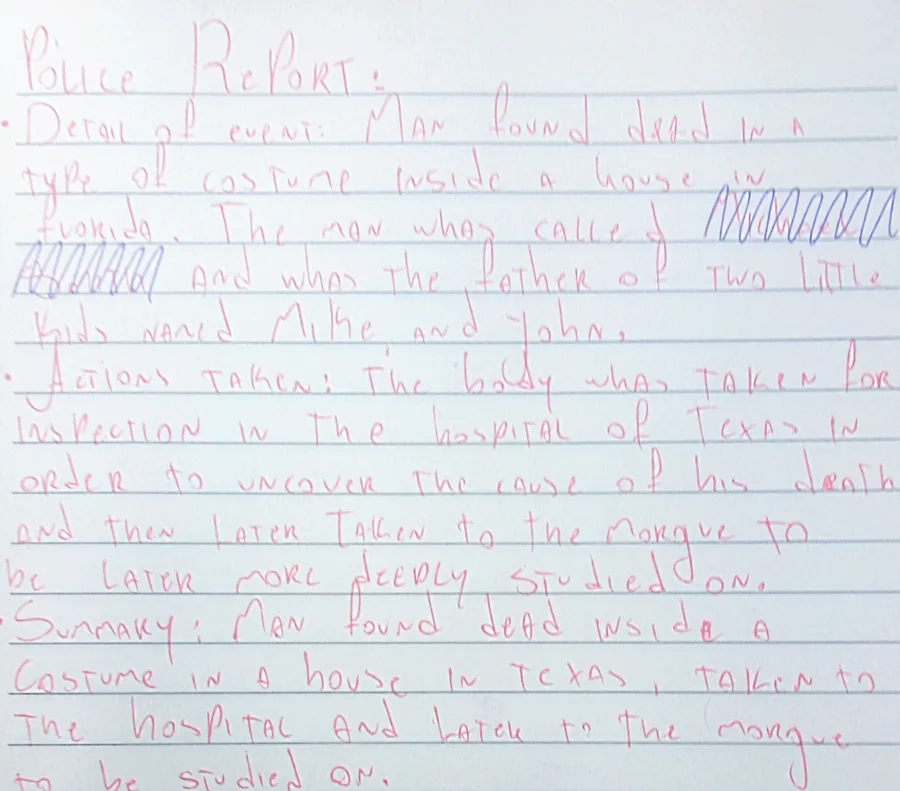 Police Report:
• Detail of event: Man found dead in a
type of costume inside a house in
Florida. The man whas called
and whas the father of two little
kids named Mike and John.
• Actions taken: The boddy whas taken for
inspection in the hospital of Texas in
order to uncover the cause of his death
and then later taken to the morgue to
be later more deeply studied on.
• Summary: Man found dead inside a
costume in a house in Texas, taken to
the hospital and later to the morgue
to be studied on.